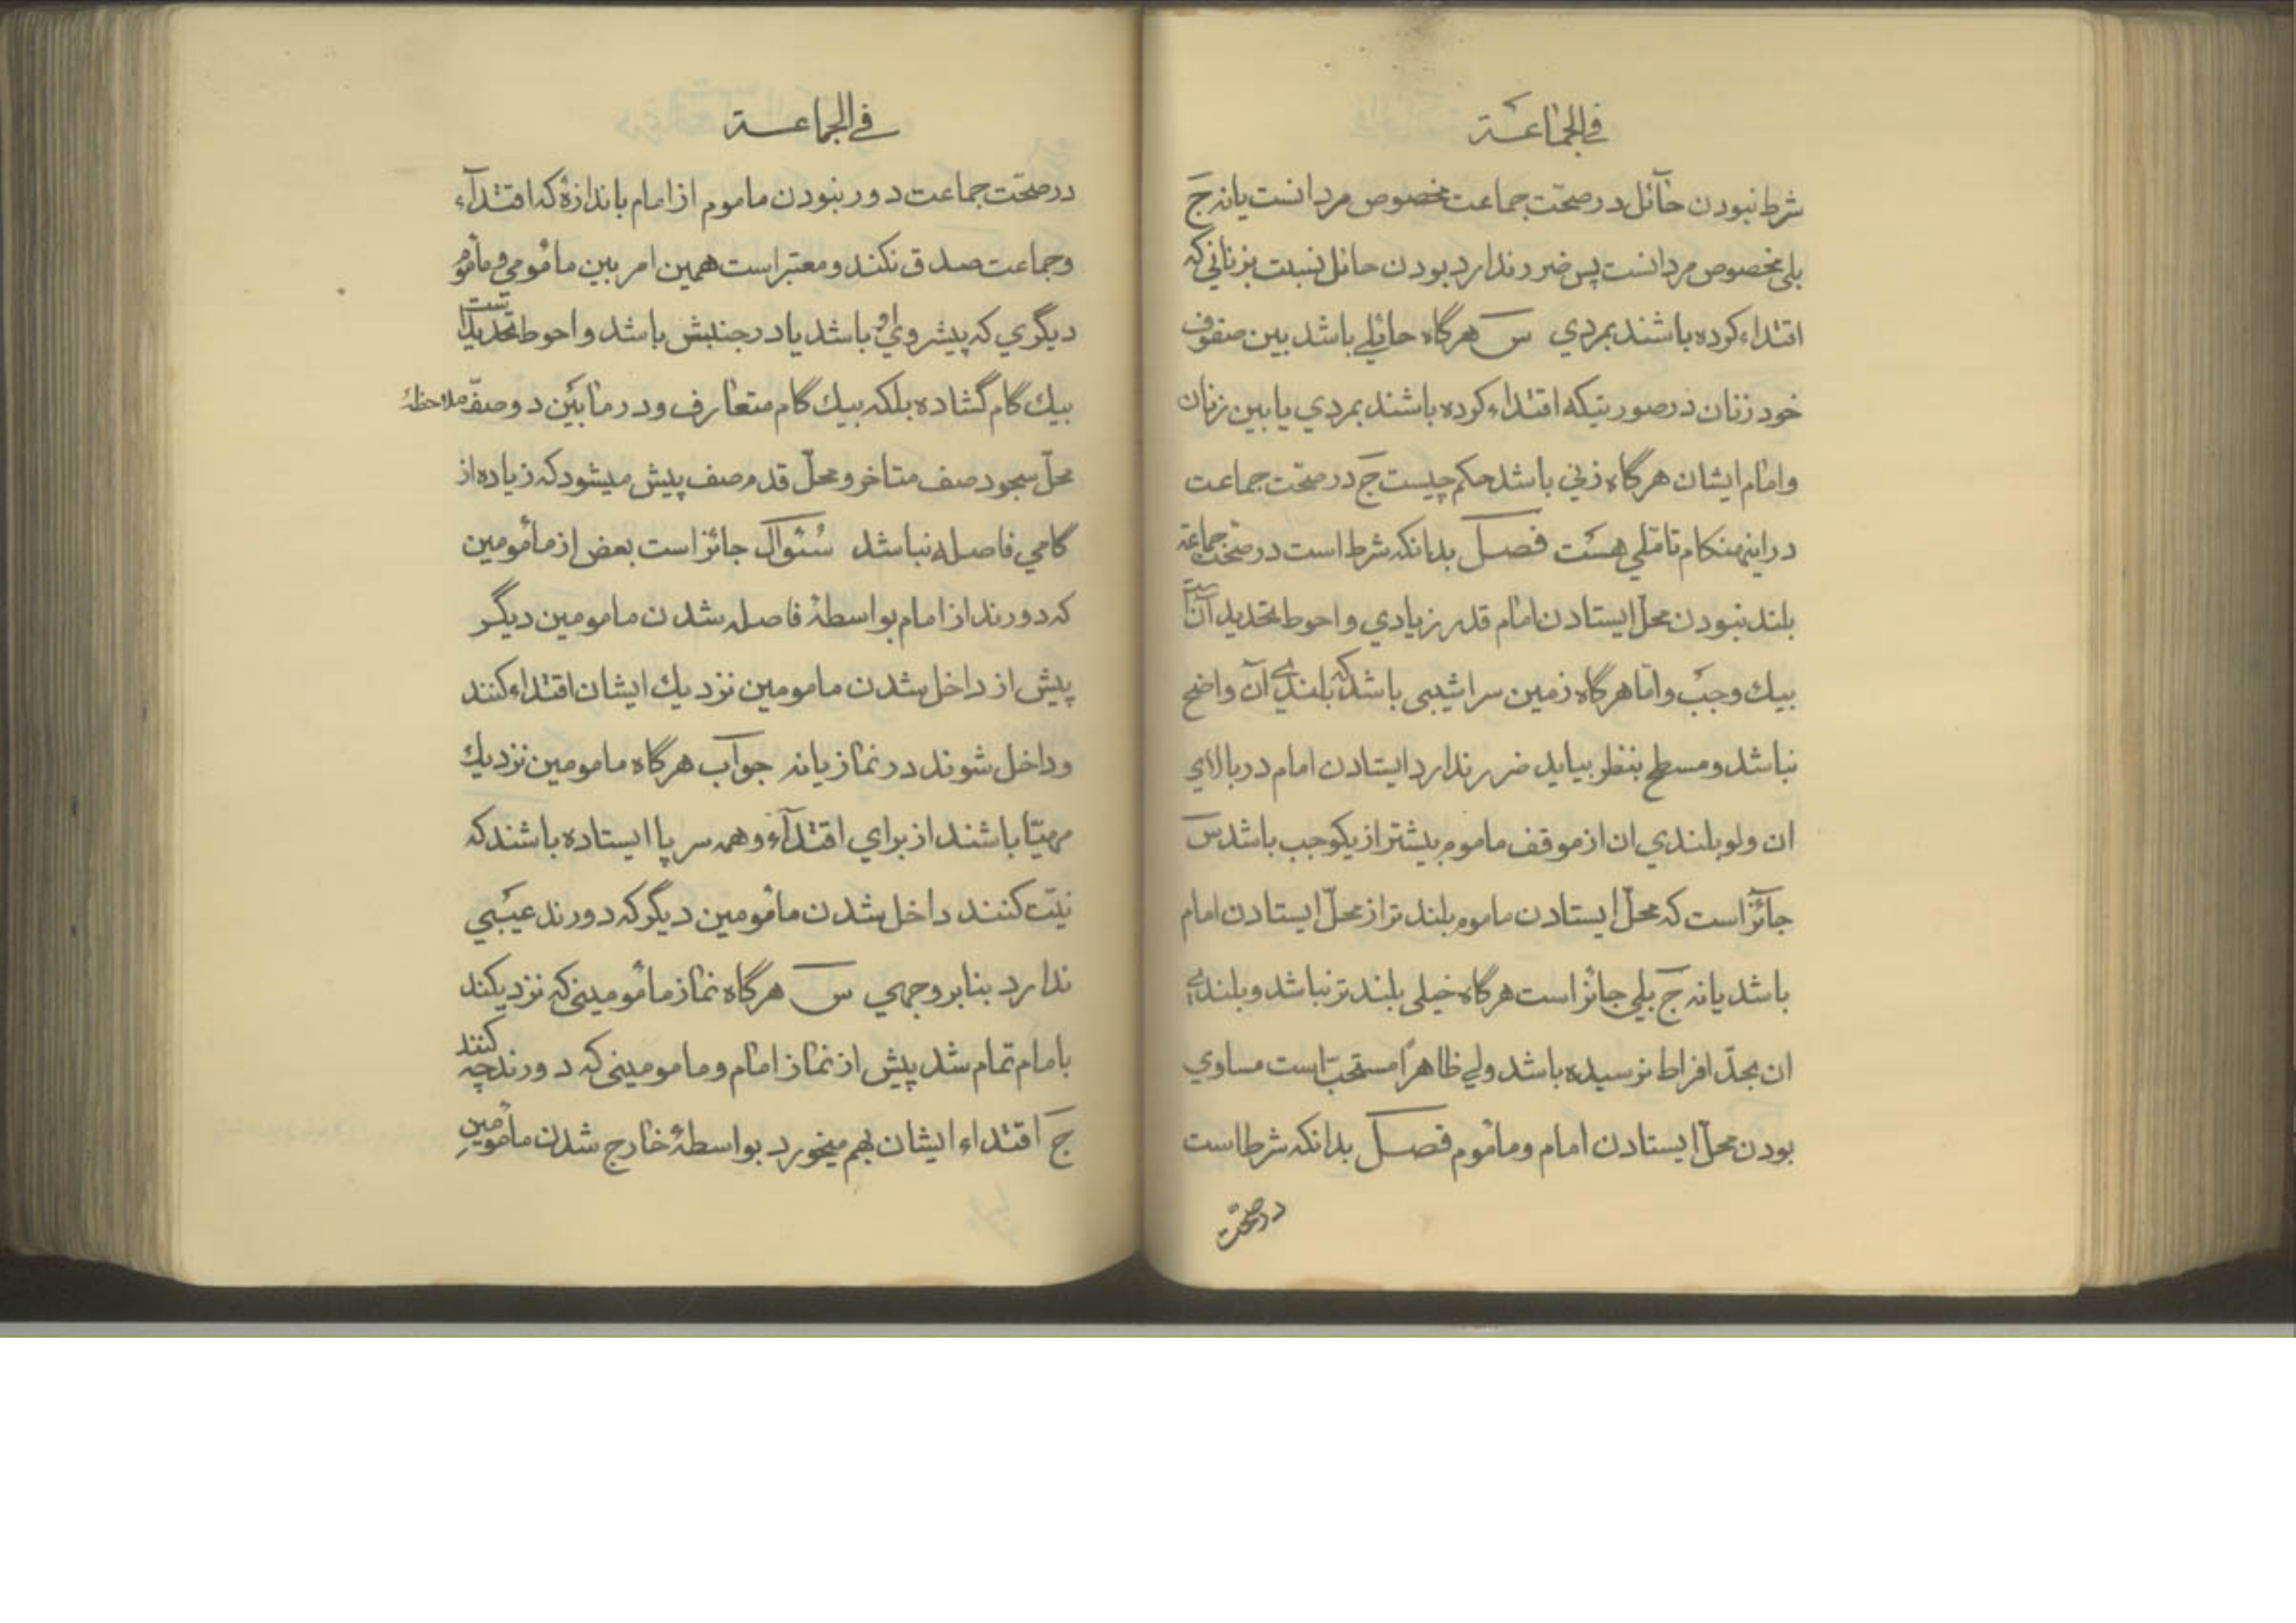 في الجماعة
شرط نبودن حآئل در صحّت جماعت مخصوص مردانست یا نه جَ
بلی مخصوص مردانست پس ضرر ندارد بودن حائل نسبت بزنانی که
اقتداء کرده باشند بمردي سَ هرگاه حائلي باشد بین صفوف
خود زنان در صورتیکه اقتداء کرده باشند بمردي یا بین زنان
وامام ایشان هرگاه زني باشد حکم چیست جَ در صحّت جماعت
در این هنکام تامّلي هست فصل بدانکه شرط است در صحّت جماعة
بلند نبودن محلّ ایستادن امام قدر زیادي و احوط تحدید آنست
بیك وجب وامّا هرگاه زمین سراشیبی باشد که بلندیٔ آن واضح
نباشد و مسطح بنظر بیاید ضرر ندارد ایستادن امام در بالاي
ان ولو بلندي ان از موقف ماموم بیشتر از یکوجب باشد سَ
جآئز است که محلّ ایستادن ماموم بلند تر از محلّ ایستادن امام
باشد یا نه جَ بلي جائز است هرگاه خیلی بلند تر نباشد و بلندیٔ
ان بحدّ افراط نرسیده باشد ولي ظاهراً مستحبّ است مساوي
بودن محلّ ایستادن امام ومأموم فصل بدانکه شرط است
در صحّت
في الجماعة
در صحّت جماعت دور نبودن ماموم از امام باندازۀ که اقتدآء
وجماعت صدق نکند و معتبر است همین امر بین مأمومي و مأموم
دیگري که پیشروي او باشد یا در جنبش باشد و احوط تحدید آنست
بیك گام گشاده بلکه بیك گام متعارف و در مابین دو صفّ ملاحظۀ
محلّ سجود صف متاخر و محلّ قدم صف پیش میشود که زیاده از
گامي فاصله نباشد سُئوال جائز است بعض از مأمومین
که دورند از امام بواسطۀ فاصله شدن مامومین دیگر
پیش از داخل شدن مامومین نزدیك ایشان اقتداء کنند
وداخل شوند در نماز یا نه جواب هرگاه مامومین نزدیك
مهیّا باشند از براي اقتدآء و همه سر پا ایستاده باشند که
نیّت کنند داخل شدن مأمومین دیگر که دورند عیبي
ندارد بنابر وجهي سَ هرگاه نماز مأمومینی که نزدیکند
بامام تمام شد پیش از نماز امام و مامومینی که دورند چه کنند
جَ اقتداء ایشان بهم میخورد بواسطۀ خارج شدن مأمومین